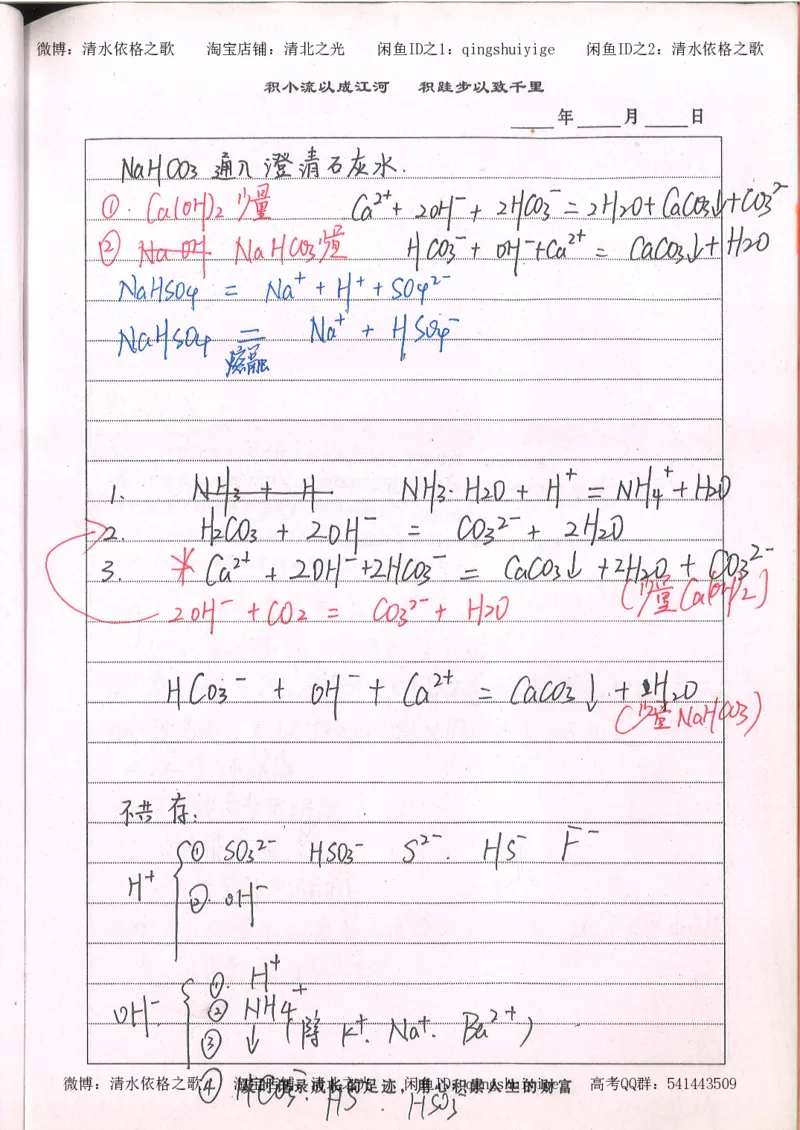 微博：清水依格之歌 淘宝店铺：清北之光 闲鱼ID之1：qingshuiyige 闲鱼ID之2：清水依格之歌
积小流以成江河 积跬步以致千里
年 月 日
NaHCO3 通入澄清石灰水.
①. Ca(OH)2 少量 Ca²⁺ + 2OH⁻ + 2HCO3⁻ = 2H2O + CaCO3↓ + CO3²⁻
② Na OH NaHCO3少量 HCO3⁻ + OH⁻ + Ca²⁺ = CaCO3↓ + H2O
NaHSO4 = Na⁺ + H⁺ + SO4²⁻
NaHSO4 = Na⁺ + HSO4⁻
熔融
1. NH3 + H NH3·H2O + H⁺ = NH4⁺ + H2O
2. H2CO3 + 2OH⁻ = CO3²⁻ + 2H2O
3. * Ca²⁺ + 2OH⁻ + 2HCO3⁻ = CaCO3↓ + 2H2O + CO3²⁻
(少量Ca(OH)2)
2OH⁻ + CO2 = CO3²⁻ + H2O
HCO3⁻ + OH⁻ + Ca²⁺ = CaCO3↓ + H2O
(少量NaHCO3)
不共存:
H⁺ ① SO3²⁻ HSO3⁻ S²⁻. HS⁻ F⁻
②. OH⁻
OH⁻ ①. H⁺
② NH4⁺
③ ↓ (除 K⁺. Na⁺. Ba²⁺)
④ HCO3⁻. HS⁻. HSO3⁻
微博：清水依格之歌 淘宝店铺：清北之光 闲鱼ID：qingshuiyige 高考QQ群：541443509
录成长的足迹，用心积累人生的财富